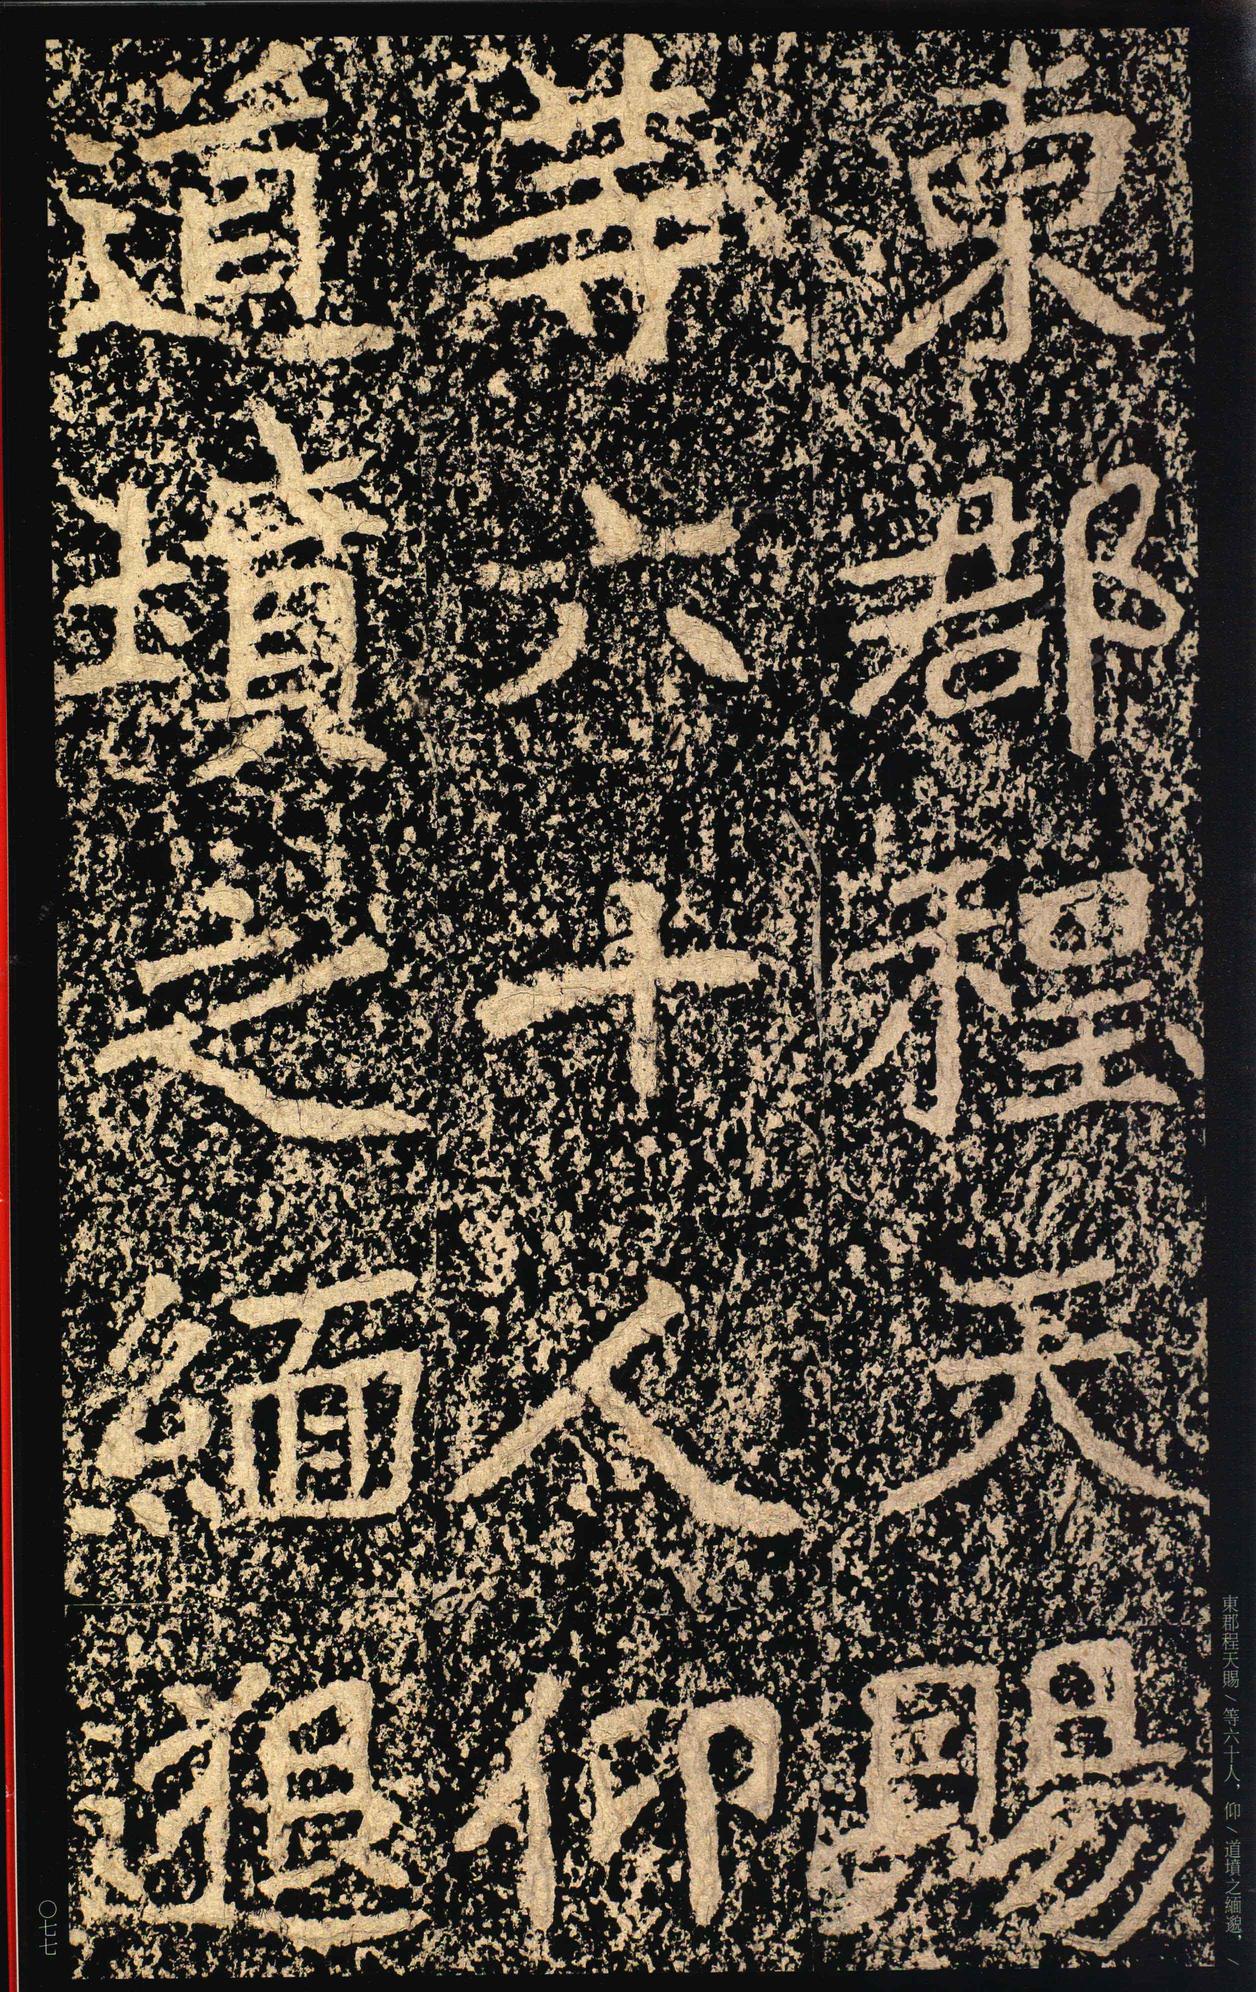 東郡程天賜
等六十人仰
道墳之緬邈
東郡程天賜/等六十人，仰/道墳之緬邈，/
〇七七